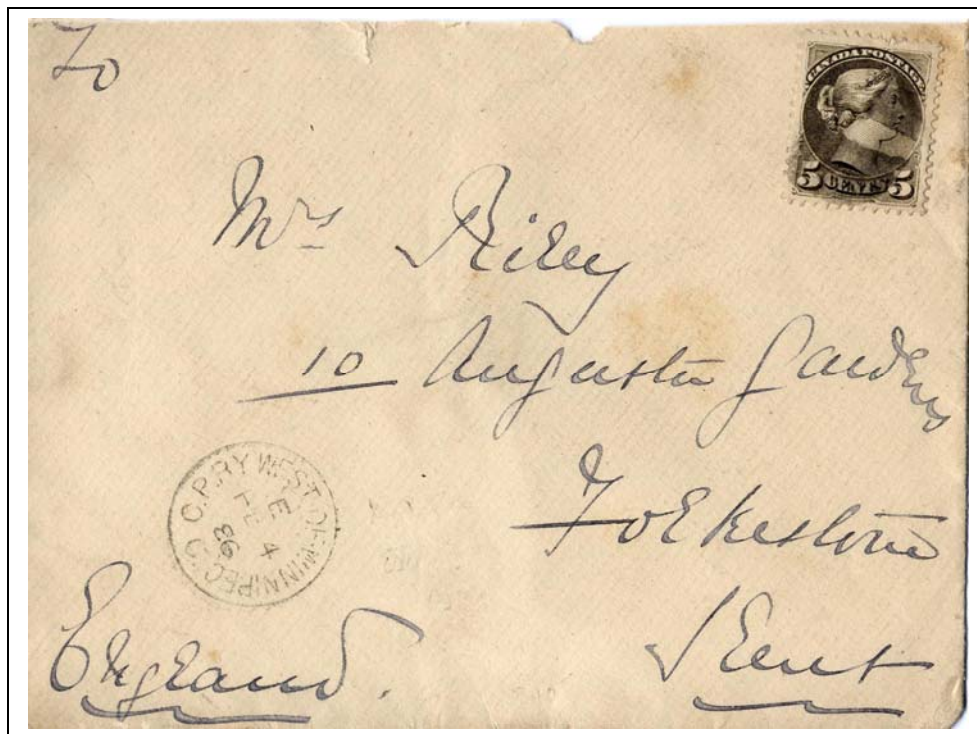 To
CANADA POSTAGE
5 CENTS 5
Mrs Riley
10 Augusta Gardens
Folkestone
Kent
England.
C.P.RY WEST OF WINNIPEG
E
FE 4
86